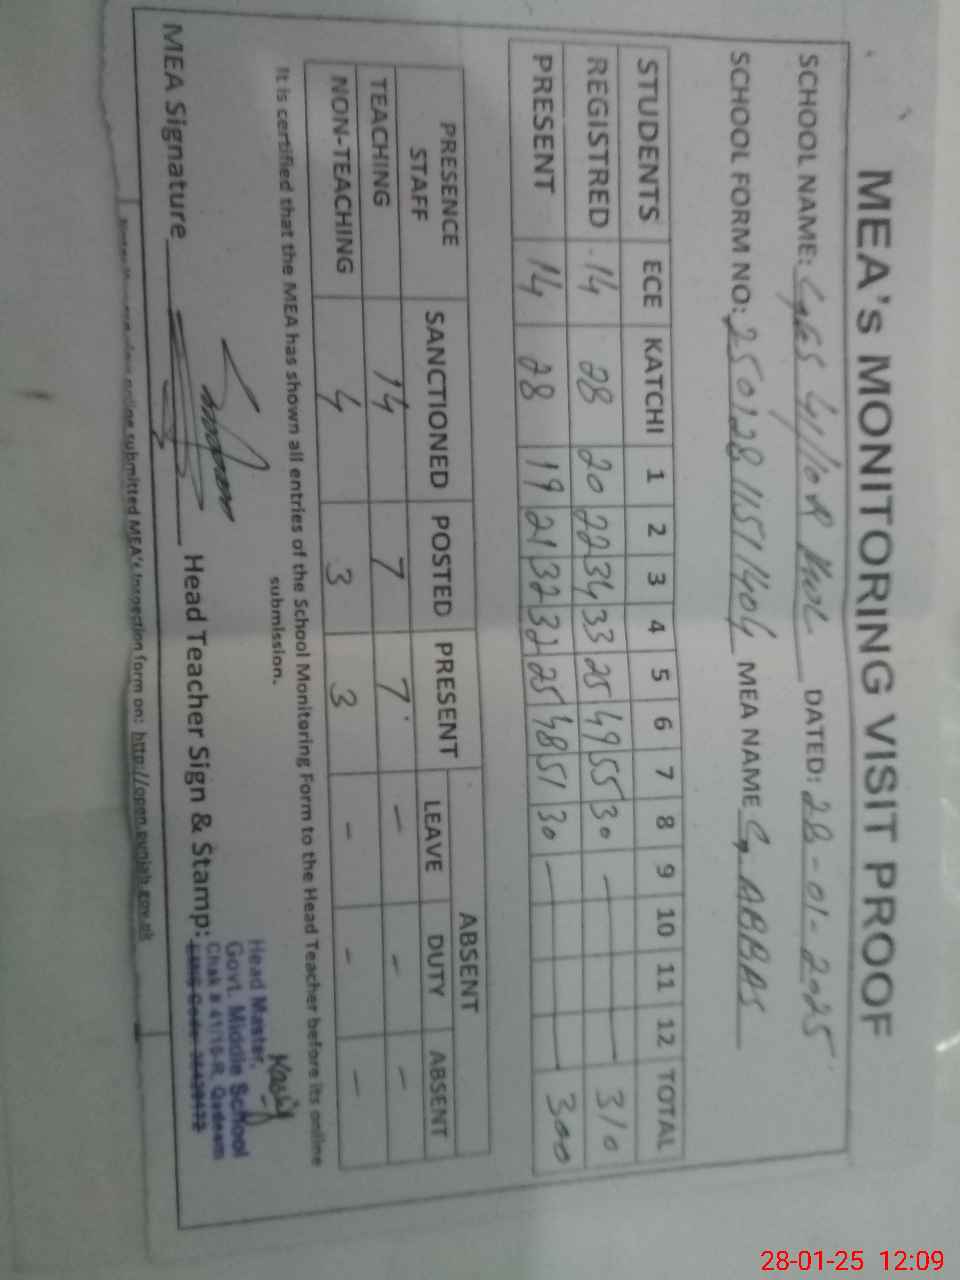 MEA's MONITORING VISIT PROOF
SCHOOL NAME: 41/10R DATED: 28-01-2025
SCHOOL FORM NO: 25012811511404 MEA NAME G. ABBAS
STUDENTS ECE KATCHI 1 2 3 4 5 6 7 8 9 10 11 12 TOTAL
REGISTRED 14 28 20 22 34 33 25 49 55 30 — 310
PRESENT 14 28 19 21 32 32 25 48 51 30 — 300
PRESENCE STAFF SANCTIONED POSTED PRESENT ABSENT
LEAVE DUTY ABSENT
TEACHING 14 7 7 - - -
NON-TEACHING 4 3 3 - - -
It is certified that the MEA has shown all entries of the School Monitoring Form to the Head Teacher before its online
submission.
MEA Signature Head Teacher Sign & Stamp:
Kashif
Head Master,
Govt. Middle School
Chak # 41/10-R,
online submitted MEA's Inspection form on: http://open.punjab.gov.pk
28-01-25 12:09